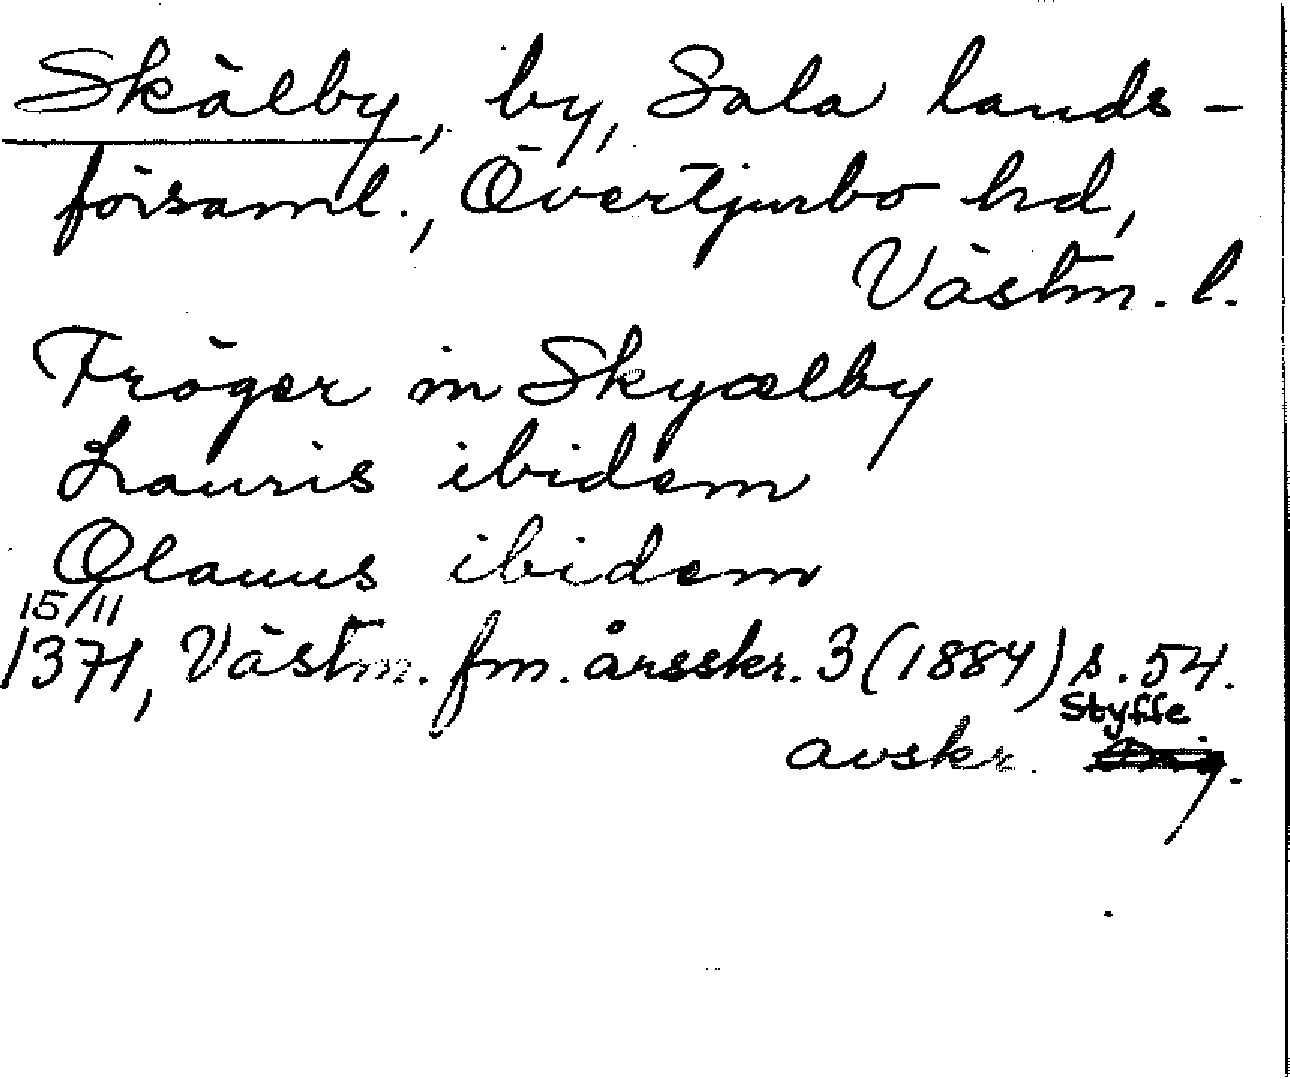 Skälby, by, Sala lands-
församl., Övertjurbo hd,
Västm. l.
Fröger in Skyælby
Lauris ibidem
Olauus ibidem
15/11
1371, Västm. fm. årsskr. 3 (1884) s. 54.
Styffe
avskr.